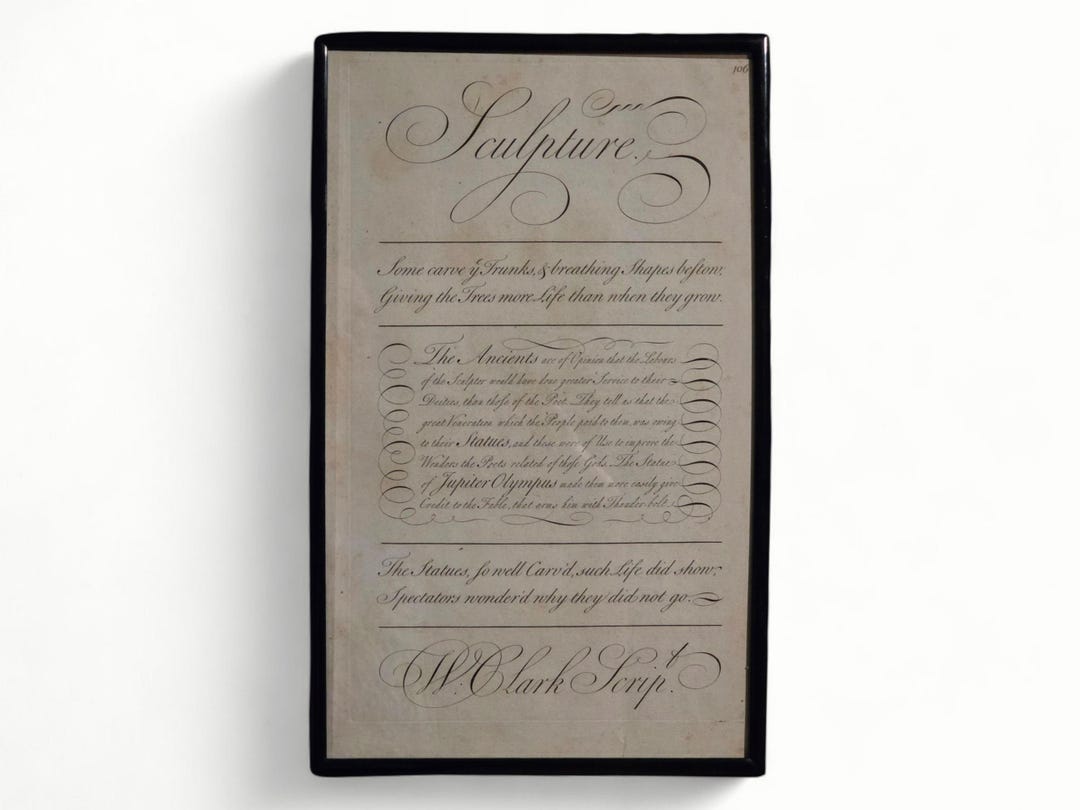 106
Sculpture.
Some carve yͤ Trunks, & breathing Shapes beſtow,
Giving the Trees more Life than when they grow.
The Ancients are of Opinion that the Labours
of the Sculptor would have done greater Service to their
Deities, than thoſe of the Poet. They tell us that the
great Veneration which the People paid to them, was owing
to their Statues, and these were of Use to improve the
Wonders the Poets related of thoſe Gods. The Statue
of Jupiter Olympus made them more easily give
Credit to the Fable, that arms him with Thunder-bolt.
The Statues, ſo well Carv'd, such Life did show,
Spectators wonder'd why they did not go.
W. Clark Scripᵗ.